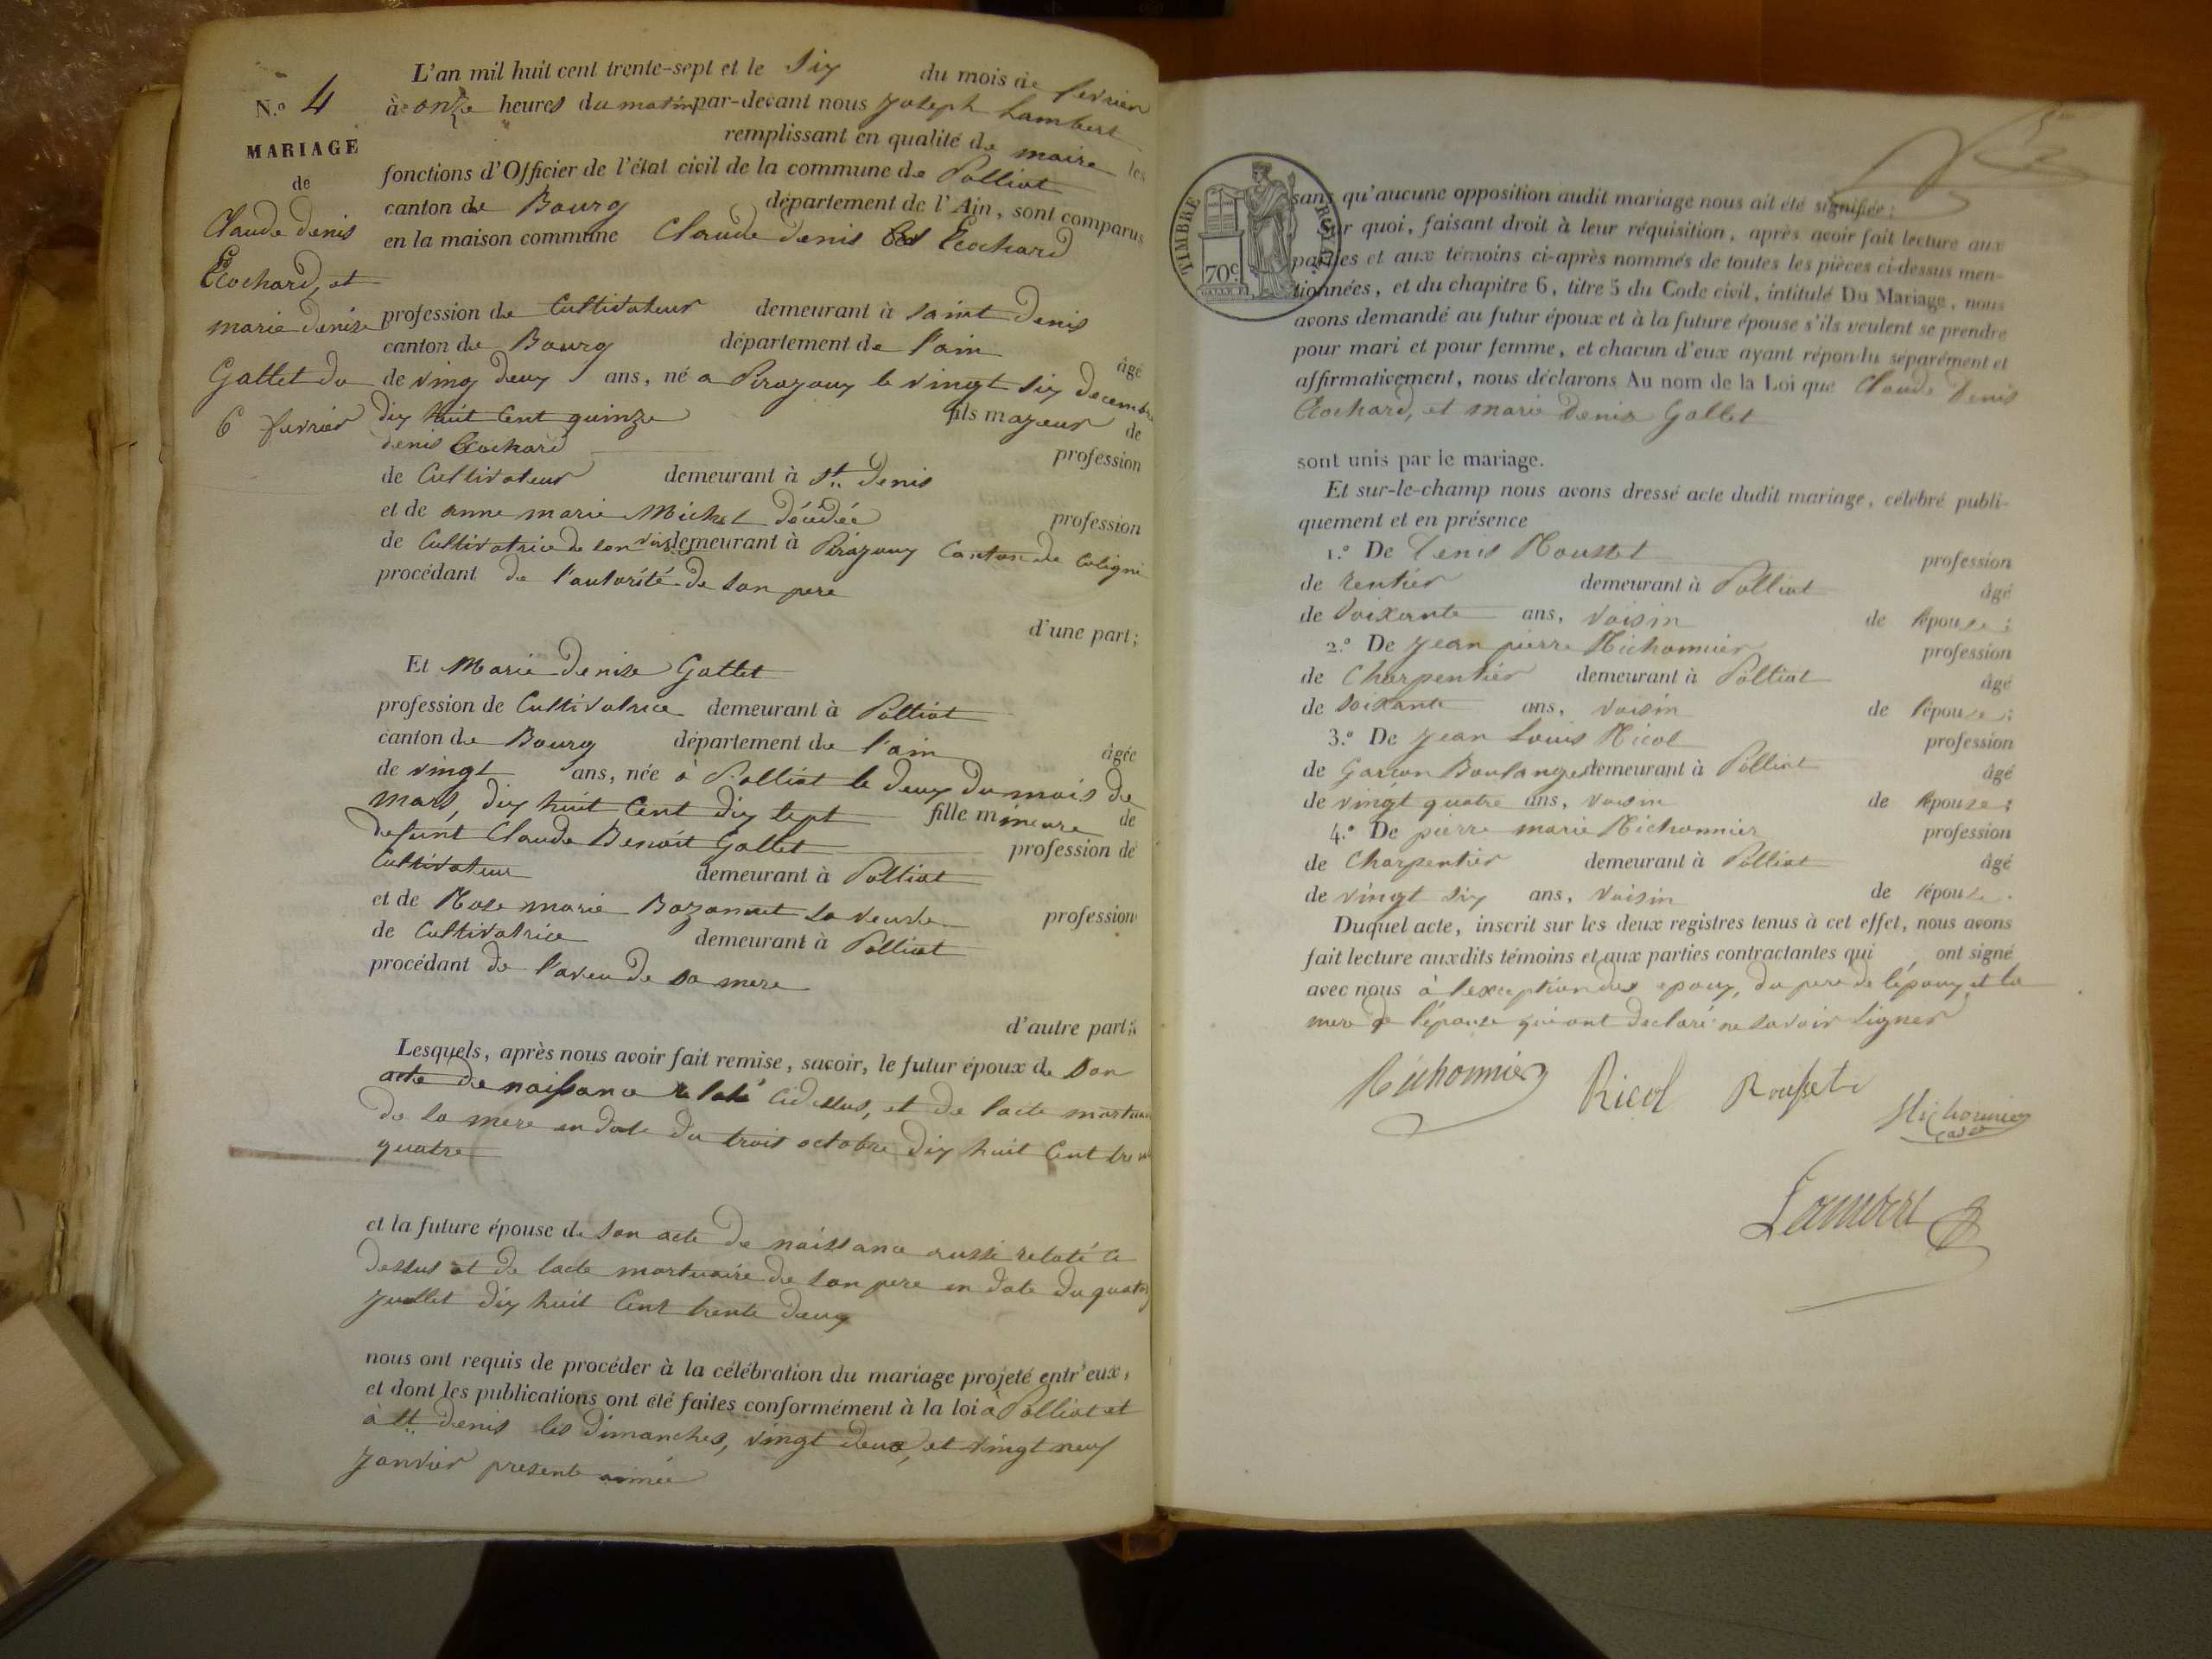 N.o 4
MARIAGE
de
Claude denis
Cochard, et
marie denise
Gallet du
6 fevrier
L'an mil huit cent trente-sept et le six du mois de fevrier
à onze heures du matin par-devant nous joseph Lambert
remplissant en qualité de maire les
fonctions d'Officier de l'état civil de la commune de Polliat
canton de Bourg département de l'Ain, sont comparus
en la maison commune Claude denis Cochard
profession de Cultivateur demeurant à saint Denis
canton de Bourg département de l'ain
âgé
de ving deux ans, né a Pirajoux le vingt six decembre
dix huit Cent quinze fils majeur de
denis Cochard profession
de Cultivateur demeurant à St. Denis
et de anne marie Michel décédée profession
de Cultivatrice de son vivant demeurant à Pirajoux Canton de Coligni
procédant de l'autorité de son pere
d'une part;
Et Marie denise Gallet
profession de Cultivatrice demeurant à Polliat
canton de Bourg département de l'ain
âgée
de vingt ans, née à Polliat le deux du mois de
mars, dix huit Cent dix sept fille mineure de
defunt Claude Benoit Gallet profession de
Cultivateur demeurant à Polliat
et de Rose marie Bozonnet sa veuve profession
de Cultivatrice demeurant à Polliat
procédant de l'aveu de sa mere
d'autre part;
Lesquels, après nous avoir fait remise, savoir, le futur époux de son
acte de naissance relaté Cidessus, et de lacte mortuai
de sa mere en date du trois octobre dix huit Cent tren
quatre
et la future épouse de son acte de naissance aussi relaté Ci
dessus et de lacte mortuaire de son pere en date du quatre
juillet dix huit Cent trente deux
nous ont requis de procéder à la célébration du mariage projeté entr'eux,
et dont les publications ont été faites conformément à la loi à Polliat et
à St. denis les dimanches, vingt deux, et vingt neuf
janvier presente année
TIMBRE ROYAL
70c.
sans qu'aucune opposition audit mariage nous ait été signifiée;
Sur quoi, faisant droit à leur réquisition, après avoir fait lecture aux
parties et aux témoins ci-après nommés de toutes les pièces ci-dessus men-
tionnées, et du chapitre 6, titre 5 du Code civil, intitulé Du Mariage, nous
avons demandé au futur époux et à la future épouse s'ils veulent se prendre
pour mari et pour femme, et chacun d'eux ayant répondu séparément et
affirmativement, nous déclarons Au nom de la Loi que Claude Denis
Cochard, et marie Denise Gallet
sont unis par le mariage.
Et sur-le-champ nous avons dressé acte dudit mariage, célébré publi-
quement et en présence
1.o De Denis Rousset profession
de rentier demeurant à Polliat âgé
de Soixante ans, voisin de lépouse;
2.o De jean pierre Michonnier profession
de Charpentier demeurant à Polliat âgé
de soixante ans, voisin de l'épouse;
3.o De jean Louis Ricol profession
de Garcon Boulanger demeurant à Polliat âgé
de vingt quatre ans, voisin de lépouse;
4.o De pierre marie Michonnier profession
de Charpentier demeurant à Polliat âgé
de vingt six ans, voisin de lépouse.
Duquel acte, inscrit sur les deux registres tenus à cet effet, nous avons
fait lecture auxdits témoins et aux parties contractantes qui ont signé
avec nous à l'exception des epoux, du pere de l'époux, et la
mere de l'épouse qui ont declaré ne savoir signer
Michonnier Ricol Rousset
Michonnier
Lambert